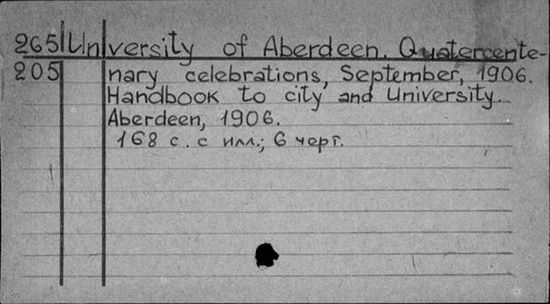 265 University of Aberdeen. Quatercente-
205 nary celebrations, September, 1906.
Handbook to city and University.
Aberdeen, 1906.
168 с. с илл.; 6 черт.